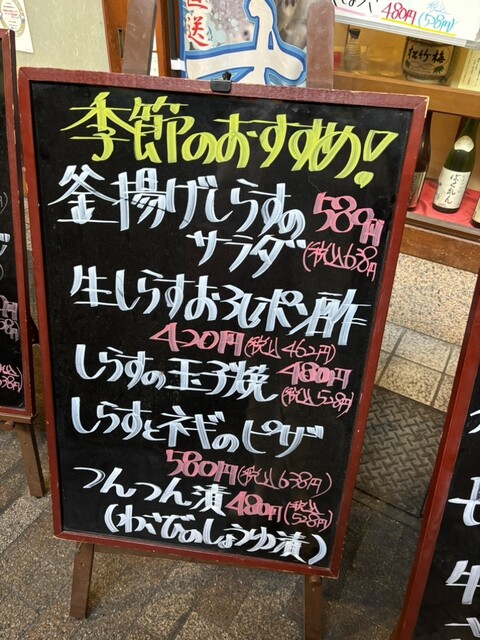 直送
480円(税込528円)
松竹梅
ばくれん
季節のおすすめ!
釜揚げしらすの
サラダ 580円
(税込638円
生しらすおろしポン酢
420円(税込462円)
しらすの玉子焼 480円
(税込528円)
しらすとネギのピザ
580円(税込638円)
つんつん漬 480円(税込528円)
(わさびのしょうゆ漬)